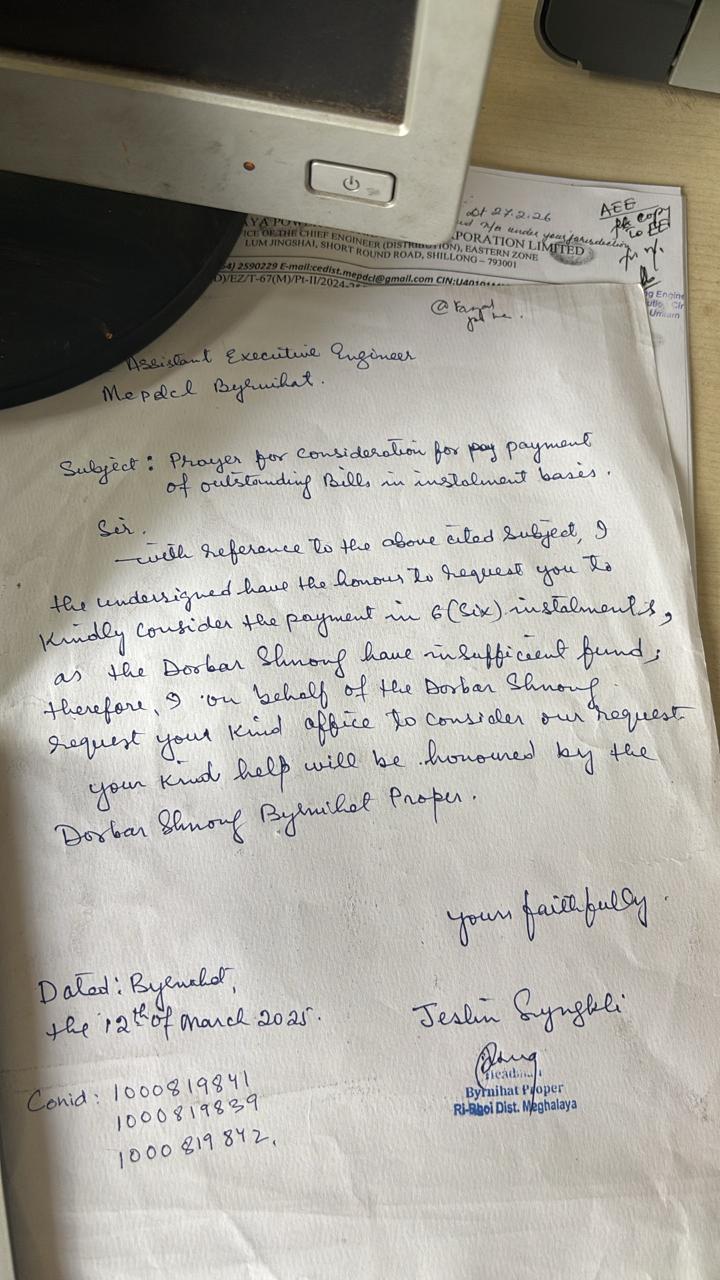 Dt 27.2.26
AEE
pl copy
to EE
under your jurisdiction
CORPORATION LIMITED
ICE OF THE CHIEF ENGINEER (DISTRIBUTION), EASTERN ZONE
LUM JINGSHAI, SHORT ROUND ROAD, SHILLONG – 793001
2590229 E-mail:cedist.mepdcl@gmail.com
D)/EZ/T-67(M)/Pt-II/2024-
Assistant Executive Engineer
Mepdcl Byrnihat.
Subject: Prayer for consideration for pay payment
of outstanding Bills in instalment bases.
Sir.
with reference to the above cited Subject, I
the undersigned have the honour to request you to
Kindly consider the payment in 6 (Six) instalments,
as the Dorbar Shnong have insufficient fund;
therefore, I on behalf of the Dorbar Shnong
request your Kind office to consider our request.
your kind help will be honoured by the
Dorbar Shnong Byrnihat Proper.
yours faithfully.
Dated: Byrnihat,
the 12th of March 2025.
Jeslin Syngkli
Headman
Byrnihat Proper
Ri-Bhoi Dist. Meghalaya
Conid: 1000819841
1000819839
1000819842.